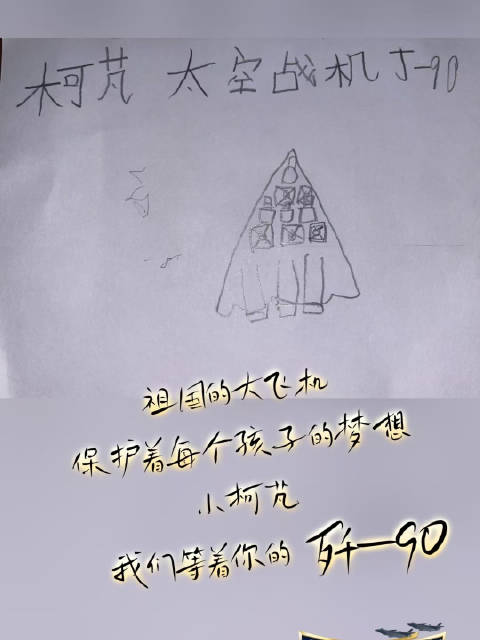 柯芃 太空战机J-90
祖国的大飞机
保护着每个孩子的梦想
小柯芃
我们等着你的 歼-90